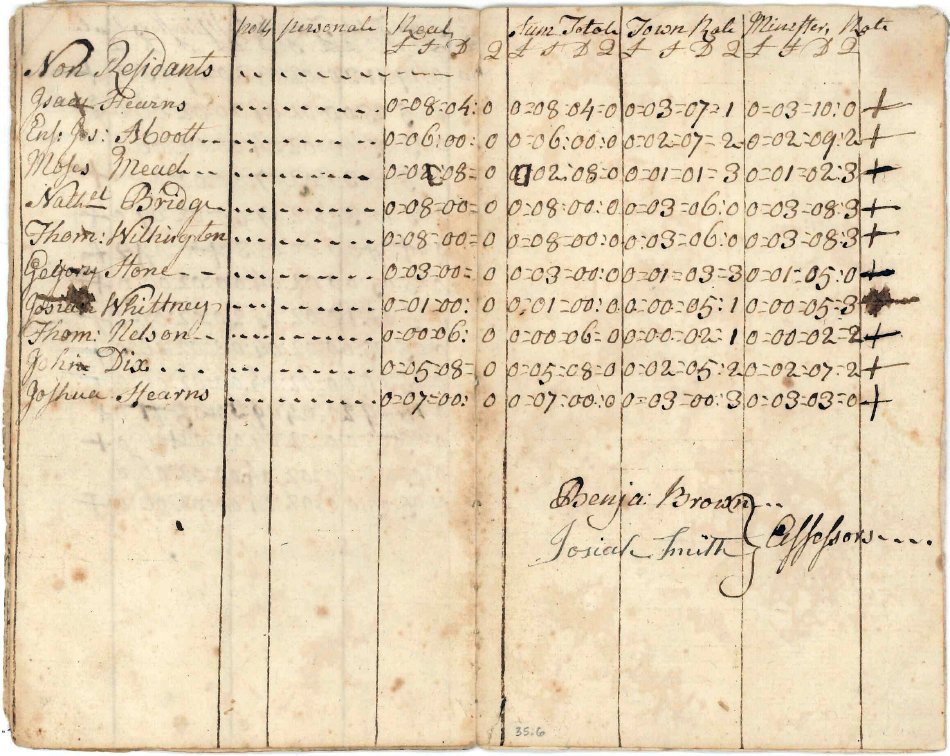 polls personale Real Sum Totale Town Rate Minister, Rate
£ S D Q £ S D Q £ S D Q £ S D Q
Non Residants
Isac Hearns 0=08=04: 0 0=08=04=0 0=03=07=1 0=03=10:0 +
Ens: Jos: Abbott 0=06:00: 0 0=06:00:0 0=02=07=2 0=02=09:2 +
Moses Mead 02:08= 0 02:08=0 0=01=01=3 0=01=02:3 +
Nathll Bridge 0=08=00= 0 0=08:00:0 0=03=06:0 0=03=08:3 +
Thom: Wilhington 0=08=00= 0 0=08=00:0 0=03=06:0 0=03=08:3 +
Gegory Stone 0=03=00= 0 0=03=00:0 0=01=03=3 0=01=05:0 +
Josiah Whittney 0=01=00: 0 0=01=00:0 0=00=05:1 0=00=05=3
Thom: Nelson 0=00=06: 0 0=00=06=0 0=00=02=1 0=00=02=2 +
John Dix 0=05=08= 0 0=05=08=0 0=02=05:2 0=02=07:2 +
Joshua Hearns 0=07=00: 0 0=07=00:0 0=03=00:3 0=03=03=0 +
Benja: Brown
Josiah Smith } Assessors
35.6